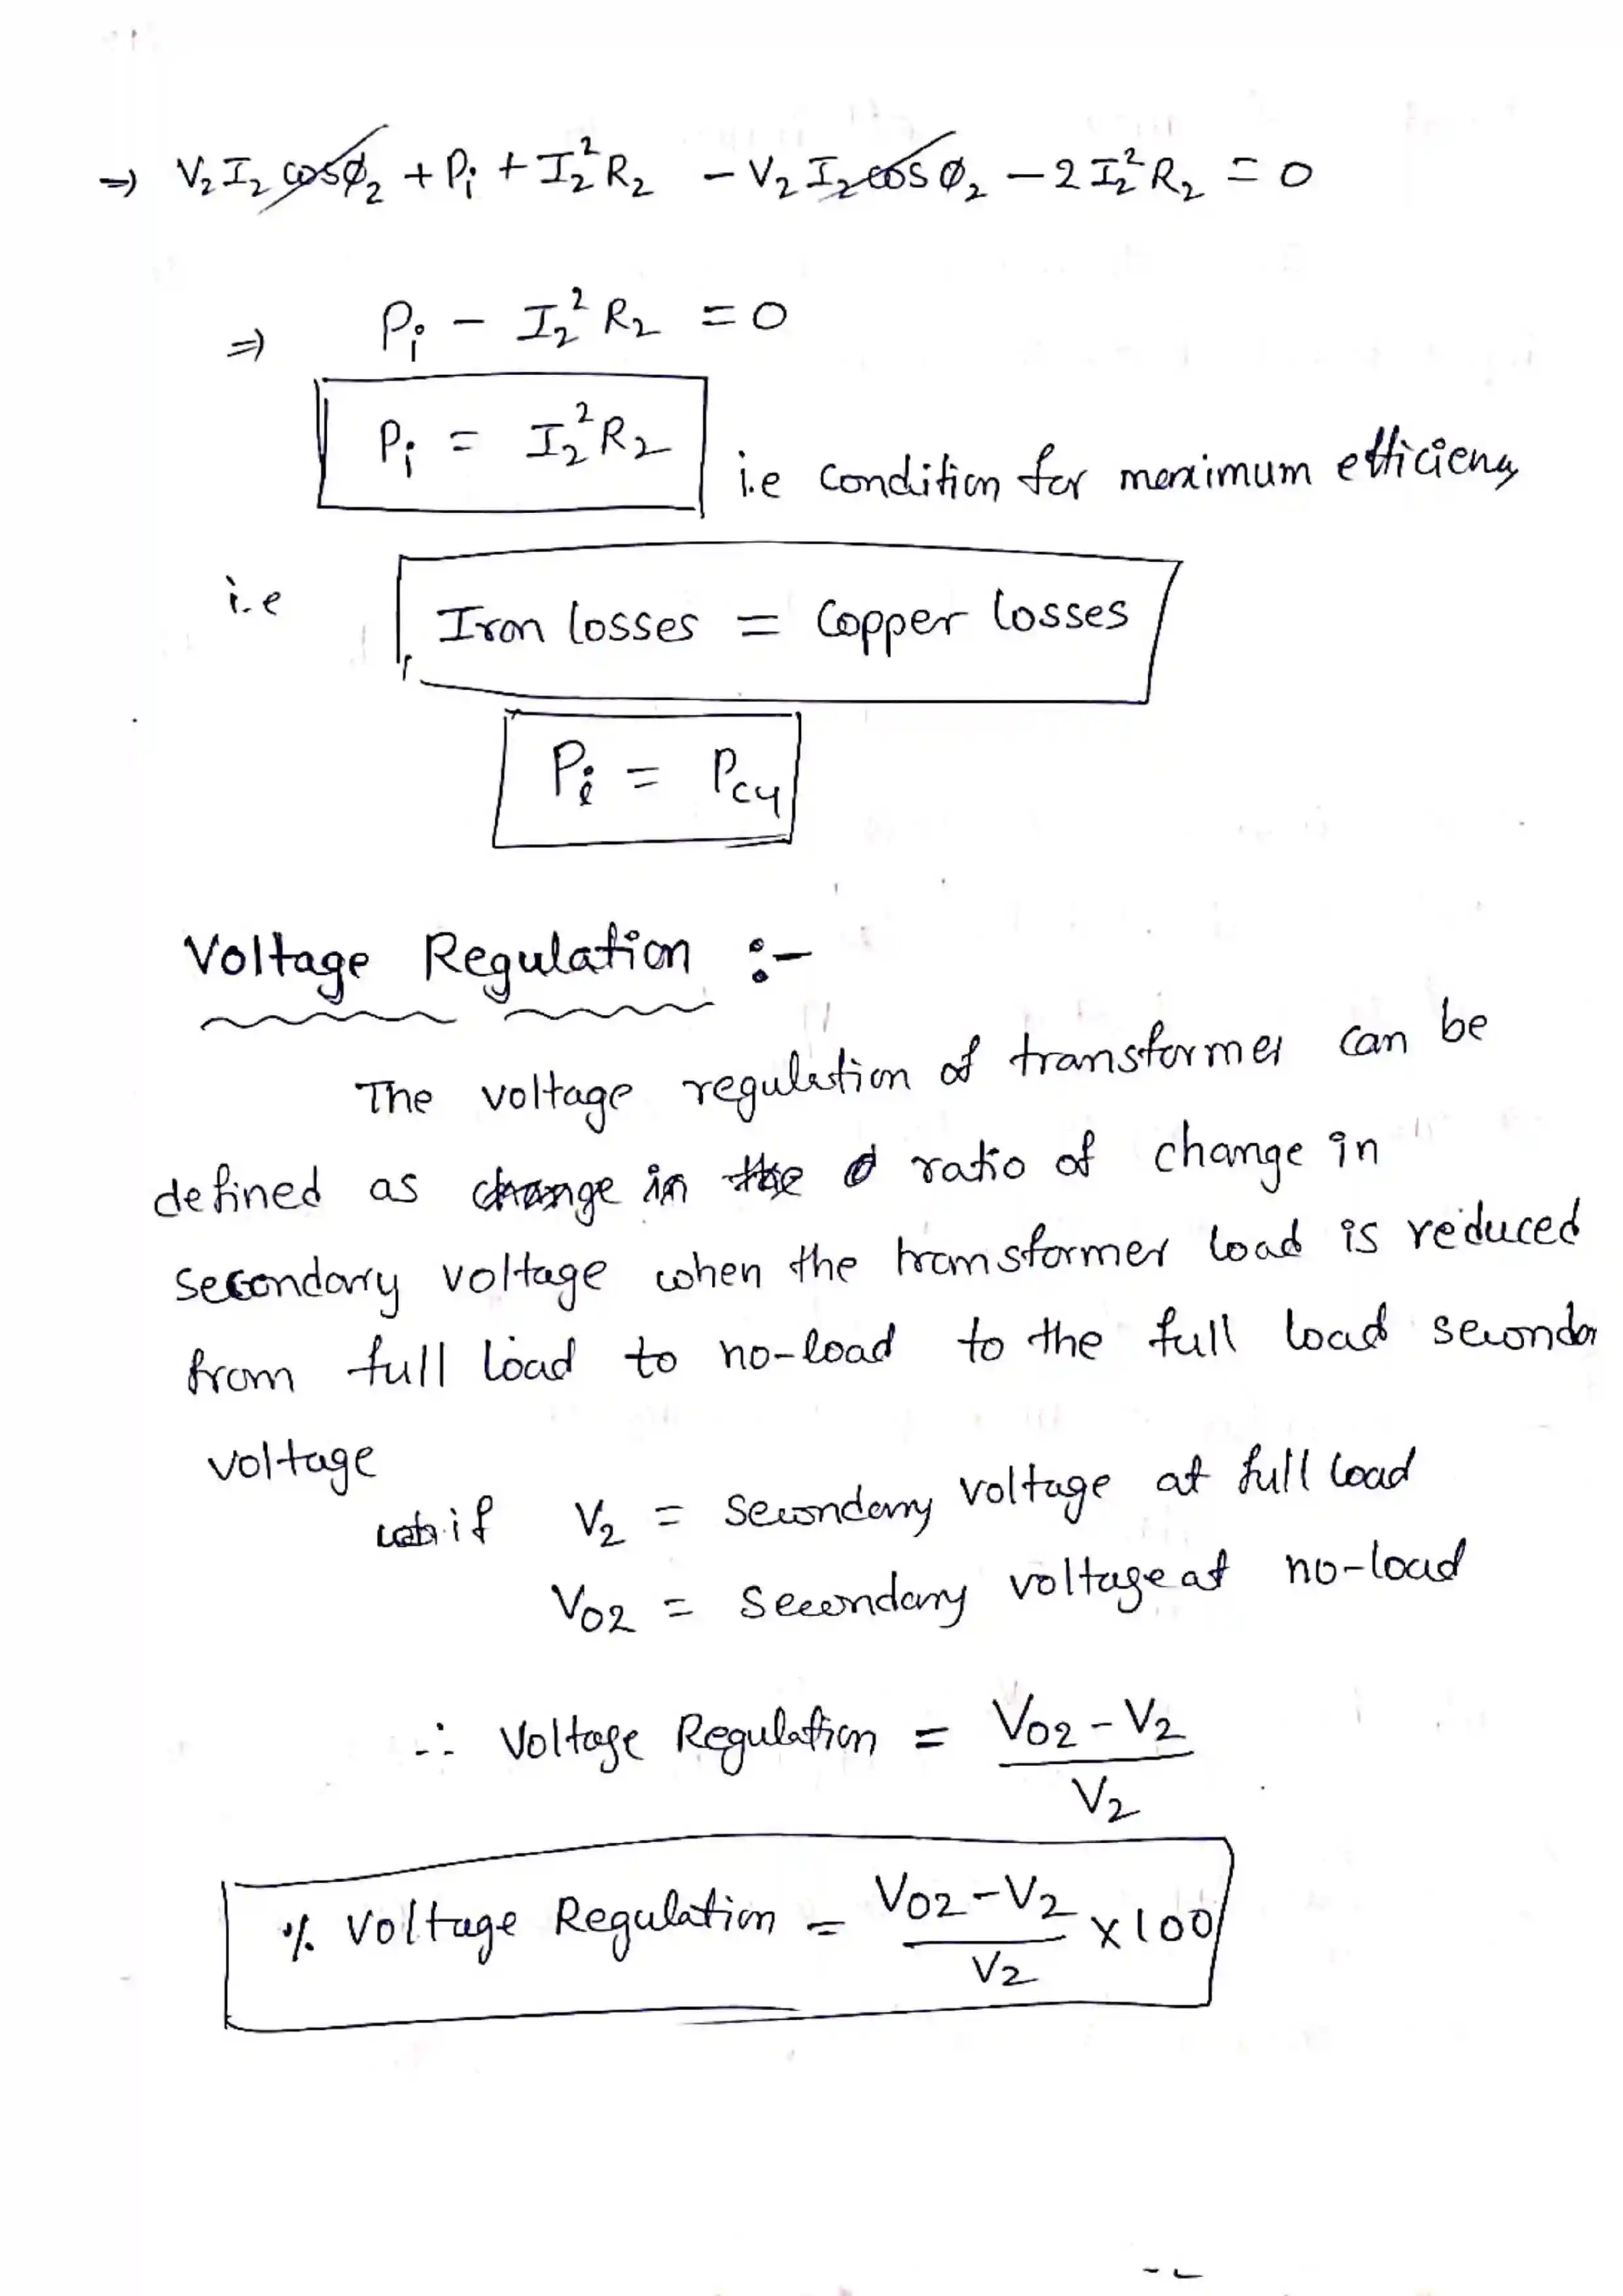 ⇒ V₂I₂ cosϕ₂ + Pᵢ + I₂²R₂ − V₂I₂cosϕ₂ − 2I₂²R₂ = 0
⇒ Pᵢ − I₂²R₂ = 0
Pᵢ = I₂²R₂ i.e condition for maximum efficiency
i.e Iron losses = Copper losses
Pᵢ = Pcu
Voltage Regulation :-
The voltage regulation of transformer can be
defined as change in the ratio of change in
secondary voltage when the transformer load is reduced
from full load to no-load to the full load secondar
voltage
if V₂ = secondary voltage at full load
V₀₂ = Secondary voltage at no-load
∴ Voltage Regulation = V₀₂ - V₂ / V₂
% Voltage Regulation = V₀₂ - V₂ / V₂ × 100